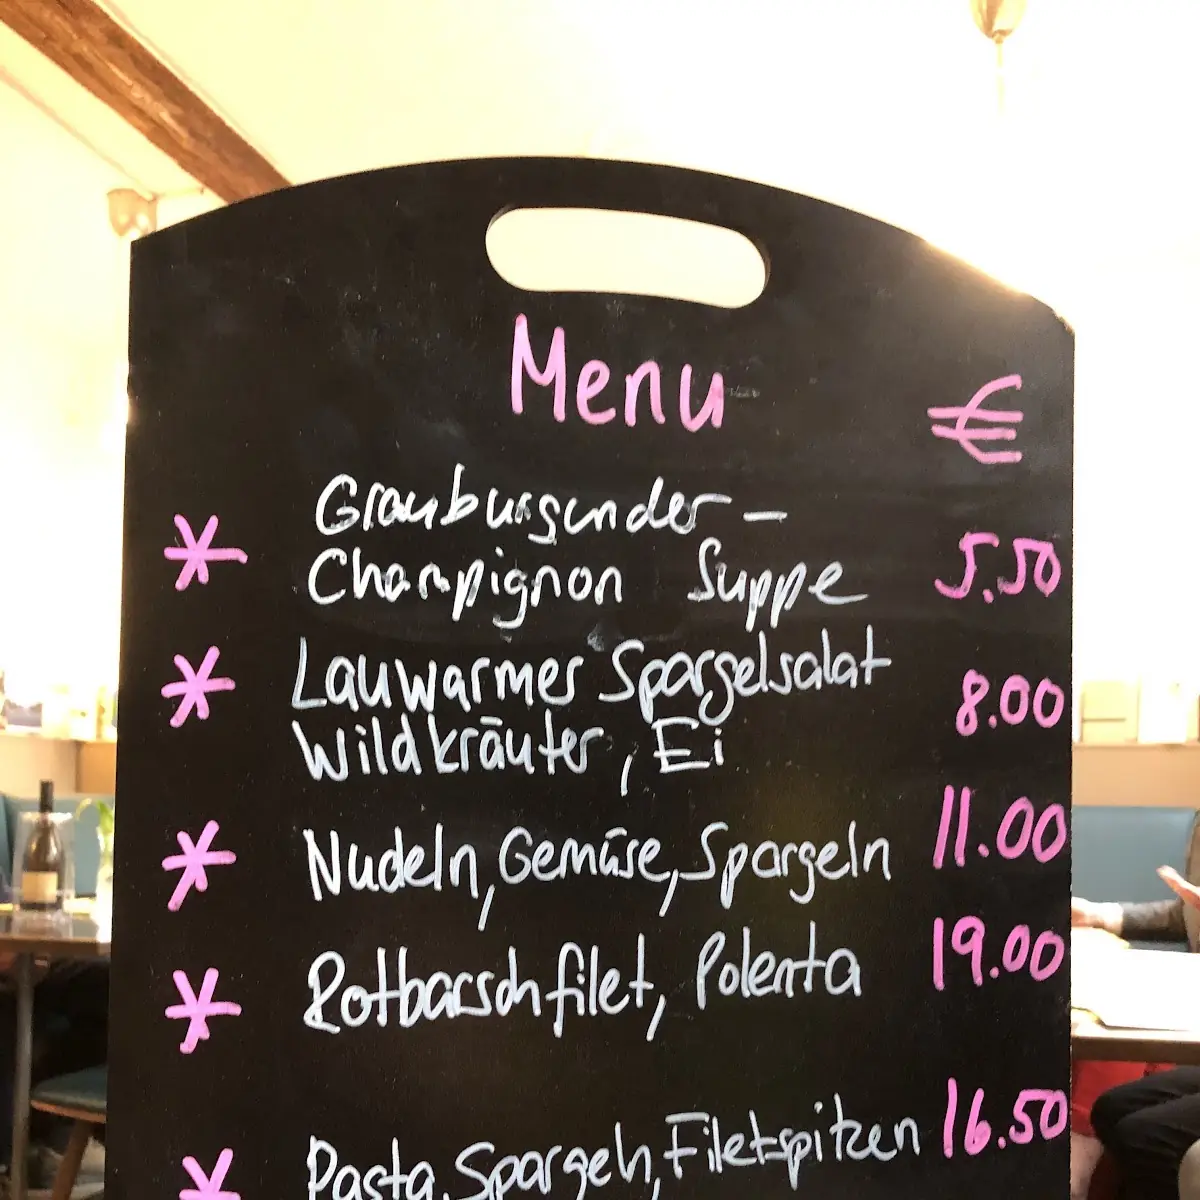 Menu
€
Grauburgunder -
Champignon Suppe 5.50
Lauwarmer Spargelsalat
Wildkräuter, Ei 8.00
Nudeln, Gemüse, Spargeln 11.00
Rotbarschfilet, Polenta 19.00
Pasta, Spargeln, Filetspitzen 16.50